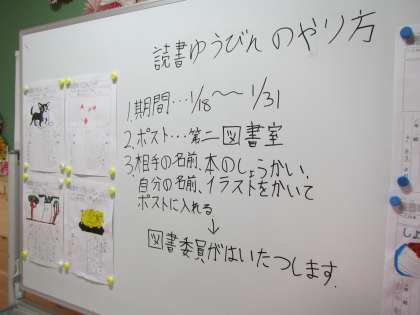 読書ゆうびんのやり方
1.期間…1/18~1/31
2.ポスト…第二図書室
3.相手の名前、本のしょうかい、
自分の名前、イラストをかいて
ポストに入れる
↓
図書委員がはいたつします。
しょ